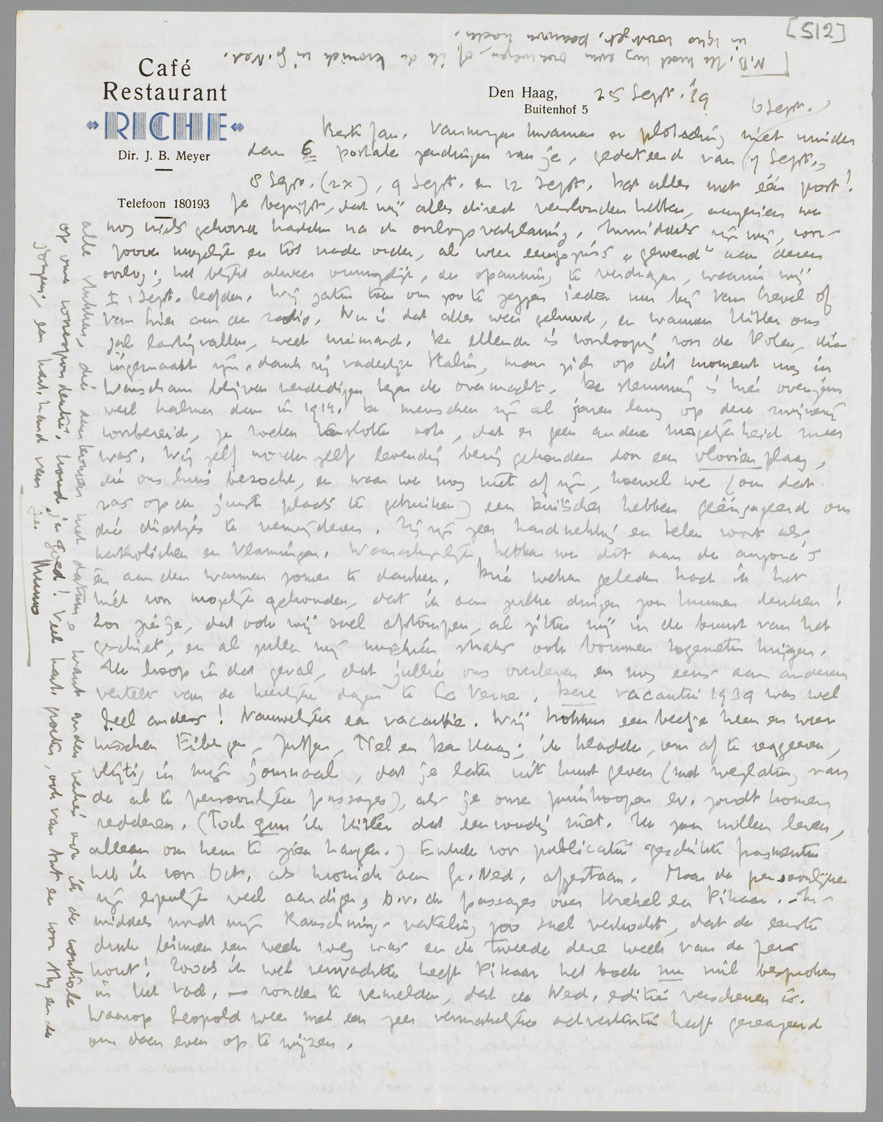 [512]
[N.B. Ik had nog even overwogen, of ik de kroniek in Gr. Ned.
Café
Restaurant
«RICHE»
Dir. J. B. Meyer
Telefoon 180193
Den Haag,
Buitenhof 5
25 Sept. '39
6 Sept.
Beste Jan. Vanmorgen kwamen er plotseling niet minder
dan 6 postale zendingen van je, gedateerd van (7 Sept.,
8 Sept. (2x), 9 Sept. en 12 Sept. Dat alles met één post!
Je begrijpt, dat wij alles direct verslonden hebben, aangezien we
nog niets gehoord hadden na de oorlogsverklaring. Inmiddels zijn wij, voor-
zoover mogelijk en tot nader order, al weer eenigszins „gewend" aan dezen
oorlog; het blijkt alweer onmogelijk, de spanning te verdragen, waarin wij
± 1 Sept. leefden. Wij zaten toen om zoo te zeggen ieder uur bij van Crevel of
van hier aan de radio. Nu is dat alles weer geluwd, en wanneer Hitler ons
zal lastig vallen, weet niemand. De ellende is voorloopig voor de Polen, die
ingemaakt zijn, dank zij vadertje Stalin, maar zich op dit moment nog in
Warschau blijven verdedigen tegen de overmacht. De stemming is hier overigens
veel kalmer dan in 1914. De menschen zijn al jaren lang op deze
voorbereid, ze voelen tenslotte ook, dat er geen andere mogelijkheid meer
was. Wij zelf worden zelf levendig bezig gehouden door een vlooienplaag,
die ons huis bezocht, en waar we nog niet af zijn, hoewel we (om dat
ras op de juiste plaats te gebruiken) een hebben geëngageerd om
die diertjes te verwijderen. Zij zijn zeer hardnekkig en telen voort als
katholieken en Vlamingen. Waarschijnlijk hebben we dit aan de angora's
en aan den warmen zomer te danken. Drie weken geleden had ik het
niet voor mogelijk gehouden, dat ik aan zulke dingen zou kunnen denken!
Zoo zie je, dat ook wij snel afstompen, al zitten wij in de buurt van het
geschiet, en al zullen wij misschien straks ook bommen toegemeten krijgen.
Ik hoop in dat geval, dat jullie ons overleven en nog eens aan anderen
vertelt van de heerlijke dagen te La Verne. Deze vacantie 1939 was wel
heel anders! Nauwelijks een vacantie. Wij trokken een beetje heen en weer
tusschen Eibergen, Zutfen, Tiel en Den Haag; ik kladde, om af te reageeren,
vlijtig in mijn journaal, dat je later uit kunt geven (met weglating van
de al te persoonlijke passages), als je onze puinhoopen ev. zoudt komen
redderen. (Toch gun ik Hitler dat eenvoudig niet. Ik zou willen leven,
alleen om hem te zien hangen.) Enkele voor publicatie geschikte fragmenten
heb ik voor Oct. als kroniek aan Gr. Ned. afgestaan. Maar de persoonlijke
zijn eigenlijk veel aardiger, b.v. de passages over Krekel en Pikaar. In-
middels wordt mijn Rauschning-vertaling zoo snel verkocht, dat de eerste
druk binnen een week weg was en de tweede deze week van de pers
komt! Zooals ik wel verwachtte heeft Pikaar het boek nu wil bespreken
in Het Vad. — zonder te vermelden, dat de Ned. editie verschenen is.
Waarop Leopold weer met een zeer vermakelijke advertentie heeft gereageerd
om daar even op te wijzen.
alle stukken, die aankomen met datum, want anders raken wij de controle
op onze correspondentie. Houd je goed! Veel hart. groeten, ook van Ant en voor
Jongens, een hart. hand van je
Menno